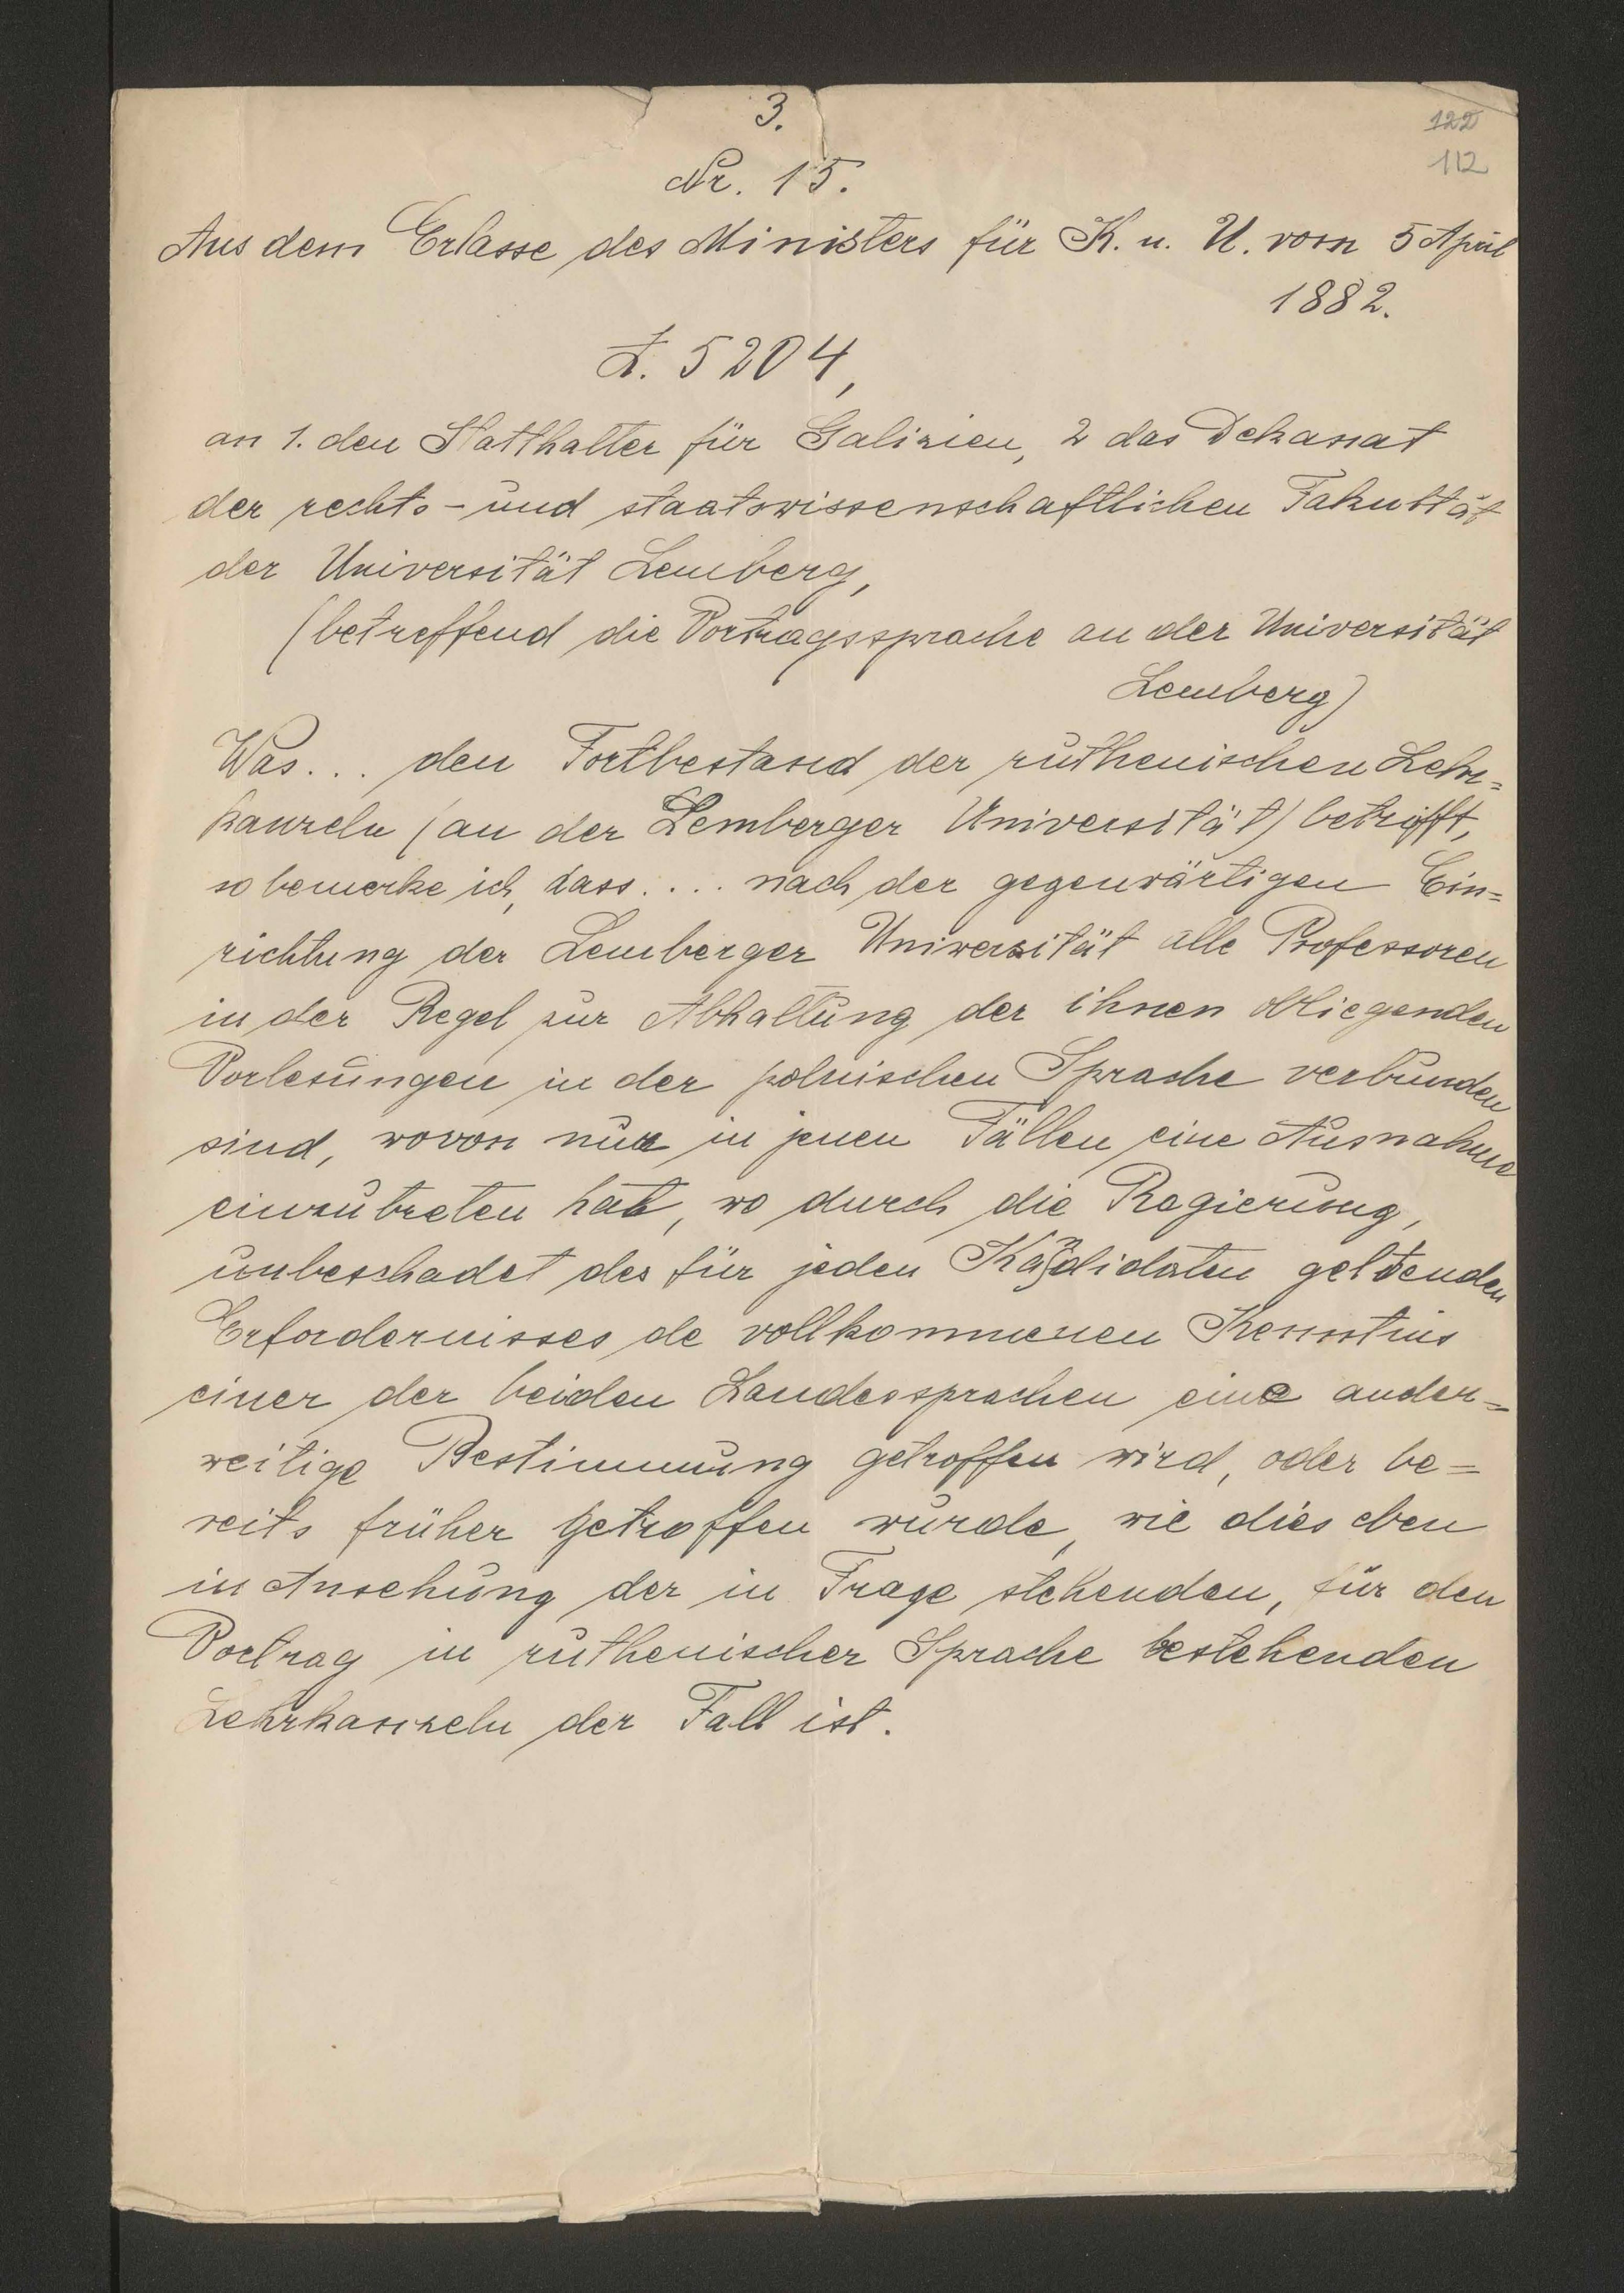 3.
122
112
Nr. 15.
Aus dem Erlasse des Ministers für K. u. U. vom 5 April
1882.
Z. 5204,
an 1. den Statthalter für Galizien, 2 das Dekanat
der rechts- und staatswissenschaftlichen Fakultät
der Universität Lemberg,
(betreffend die Vortragssprache an der Universität
Lemberg)
Was... den Fortbestand der ruthenischen Lehr=
kanzeln (an der Lemberger Universität) betrifft,
so bemerke ich, dass.... nach der gegenwärtigen Ein=
richtung der Lemberger Universität alle Professoren
in der Regel zur Abhaltung der ihnen obliegenden
Vorlesungen in der polnischen Sprache verbunden
sind, wovon nur in jenen Fällen eine Ausnahme
einzutreten hat, wo durch die Regierung,
unbeschadet des für jeden Kandidaten geltenden
Erfordernisses de vollkommenen Kenntnis
einer der beiden Landessprachen eine ander=
weitige Bestimmung getroffen wird, oder be=
reits früher getroffen wurde, wie dies eben
in Ansehung der in Frage stehenden, für den
Vortrag in ruthenischer Sprache bestehenden
Lehrkanzeln der Fall ist.